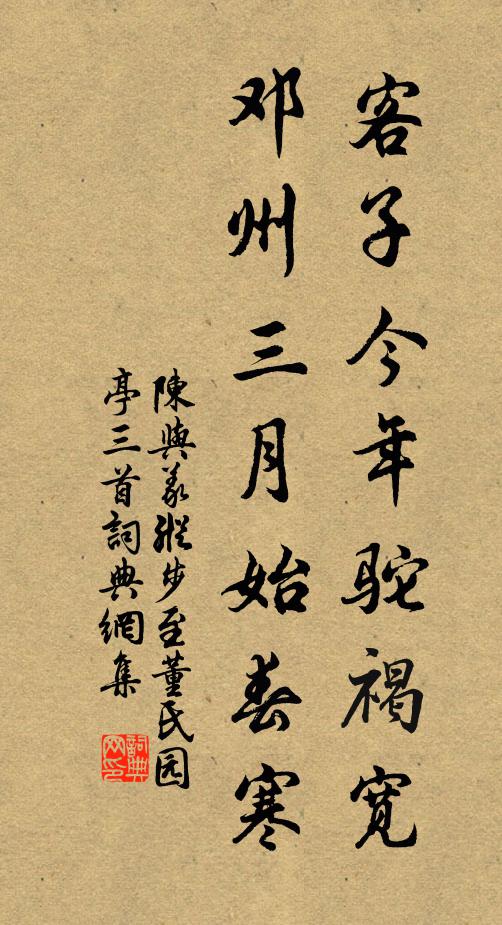 客子今年驼褐宽
邓州三月始春寒
陳與義縱步至董氏园
亭三首詞典網集
詞典
网印